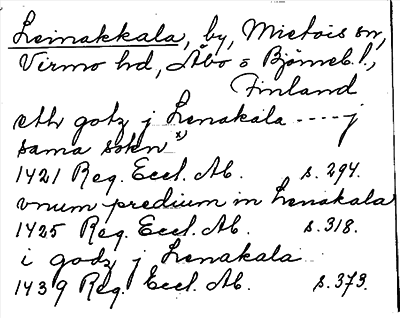 Leinakkala, by, Mietois sn,
Virmo hd, Åbo o Björneb. l.,
Finland
eth gotz j Lenakala ---- j
sama sokn x)
1421 Reg. Eccl. Ab. s. 294.
vnum predium in Lenakala
1425 Reg. Eccl. Ab. s. 318.
i godz j Lenakala
1439 Reg. Eccl. Ab. s. 373.